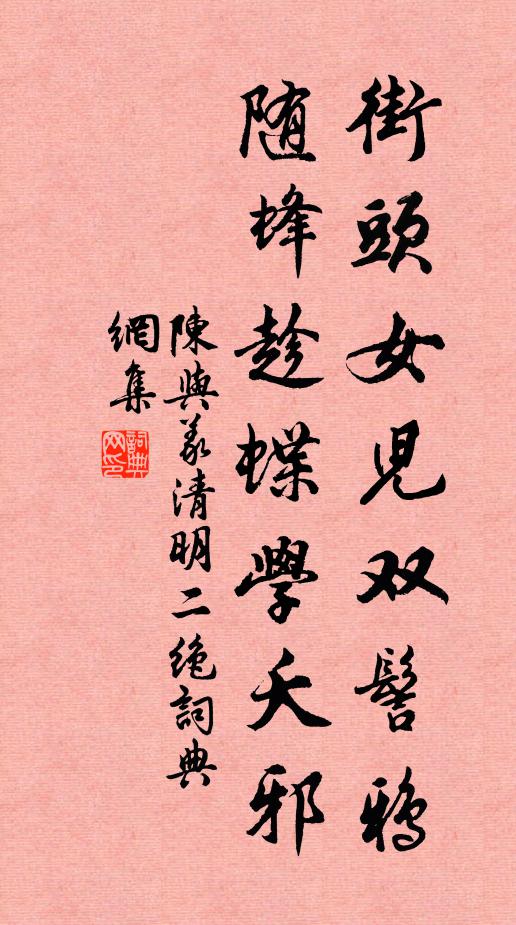 街頭女児双髻鴉
随蜂趁蝶學夭邪
陳與義清明二絶詞典
網集
詞典
网印